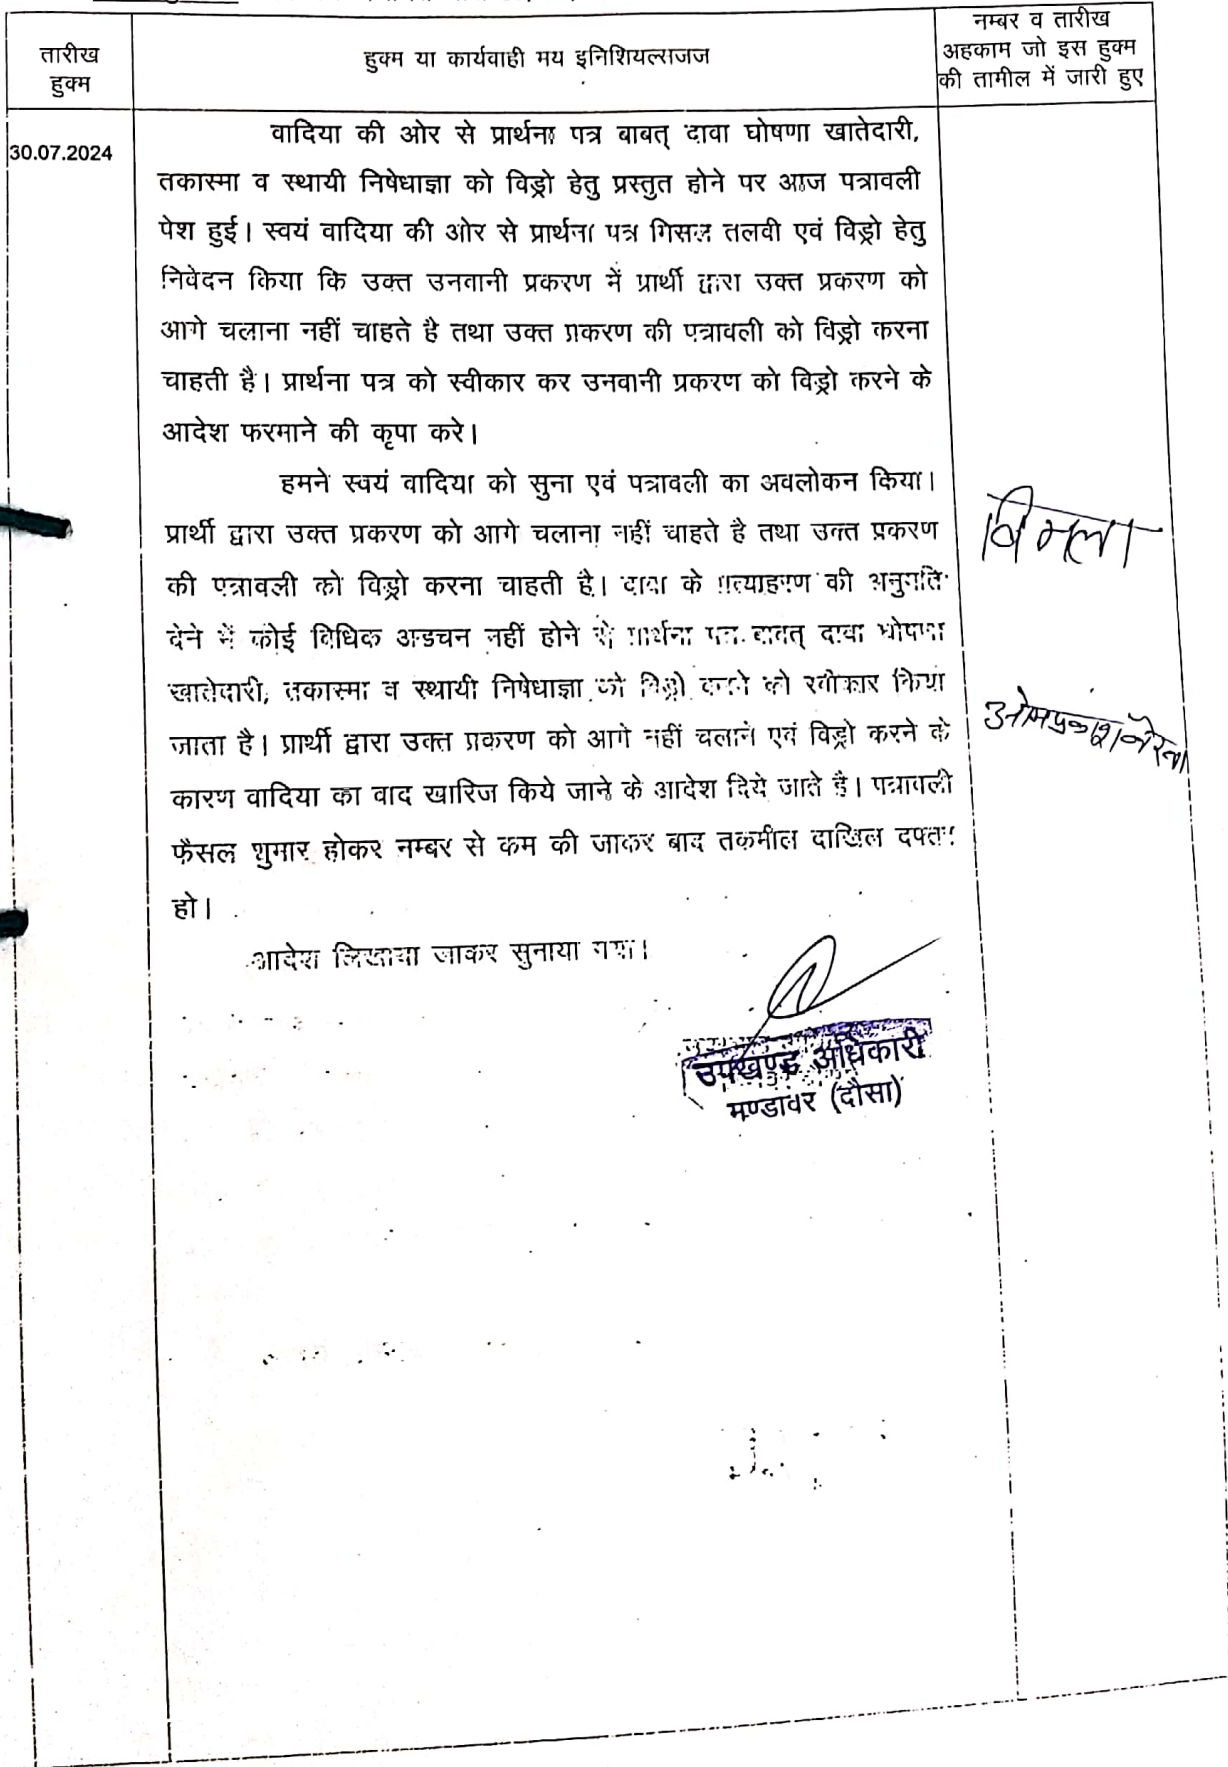 तारीख
हुक्म
हुक्म या कार्यवाही मय इनिशियल्सजज
नम्बर व तारीख
अहकाम जो इस हुक्म
की तामील में जारी हुए
30.07.2024
वादिया की ओर से प्रार्थना पत्र बाबत् दावा घोषणा खातेदारी,
तकास्मा व स्थायी निषेधाज्ञा को विड्रो हेतु प्रस्तुत होने पर आज पत्रावली
पेश हुई। स्वयं वादिया की ओर से प्रार्थना पत्र मिसल तलवी एवं विड्रो हेतु
निवेदन किया कि उक्त उनवानी प्रकरण में प्रार्थी द्वारा उक्त प्रकरण को
आगे चलाना नहीं चाहते है तथा उक्त प्रकरण की पत्रावली को विड्रो करना
चाहती है। प्रार्थना पत्र को स्वीकार कर उनवानी प्रकरण को विड्रो करने के
आदेश फरमाने की कृपा करे।
हमने स्वयं वादिया को सुना एवं पत्रावली का अवलोकन किया।
प्रार्थी द्वारा उक्त प्रकरण को आगे चलाना नहीं चाहते है तथा उक्त प्रकरण
की पत्रावली को विड्रो करना चाहती है। दावा के प्रत्याहरण की अनुमति
देने में कोई विधिक अडचन नहीं होने से प्रार्थना पत्र बाबत् दावा घोषणा
खातेदारी, तकास्मा व स्थायी निषेधाज्ञा को विड्रो करने को स्वीकार किया
जाता है। प्रार्थी द्वारा उक्त प्रकरण को आगे नहीं चलाने एवं विड्रो करने के
कारण वादिया का वाद खारिज किये जाने के आदेश दिये जाते है। पत्रावली
फैसल शुमार होकर नम्बर से कम की जाकर बाद तकमील दाखिल दफ्तर
हो।
आदेश लिखाया जाकर सुनाया गया।
बिमला
ओमप्रकाश
उपखण्ड अधिकारी
मण्डावर (दौसा)